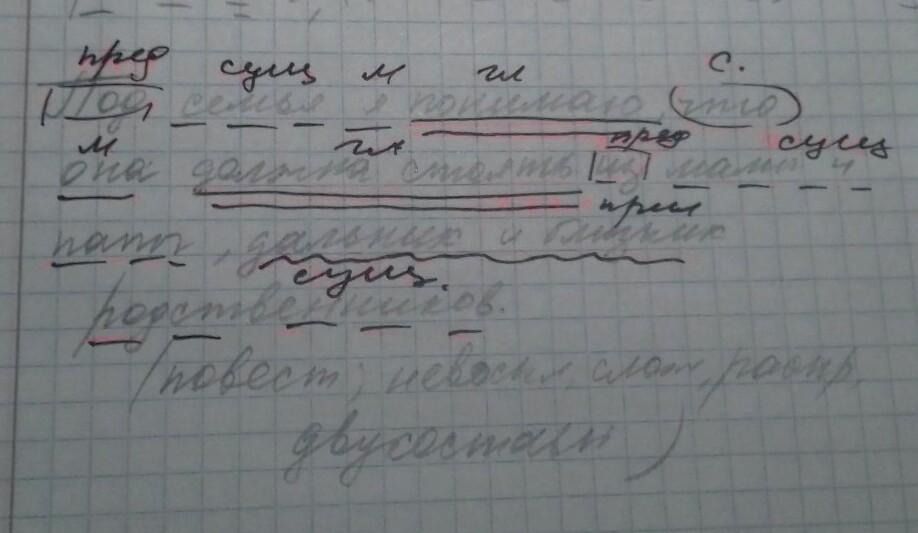 пред сущ м гл с.
Под семья я понимаю что
м гл пред сущ
она должна стоять из мамы и
прил
папы, дальных и близких
сущ.
родственников.
(повест, невоскл, слож, распр,
двусоставн)